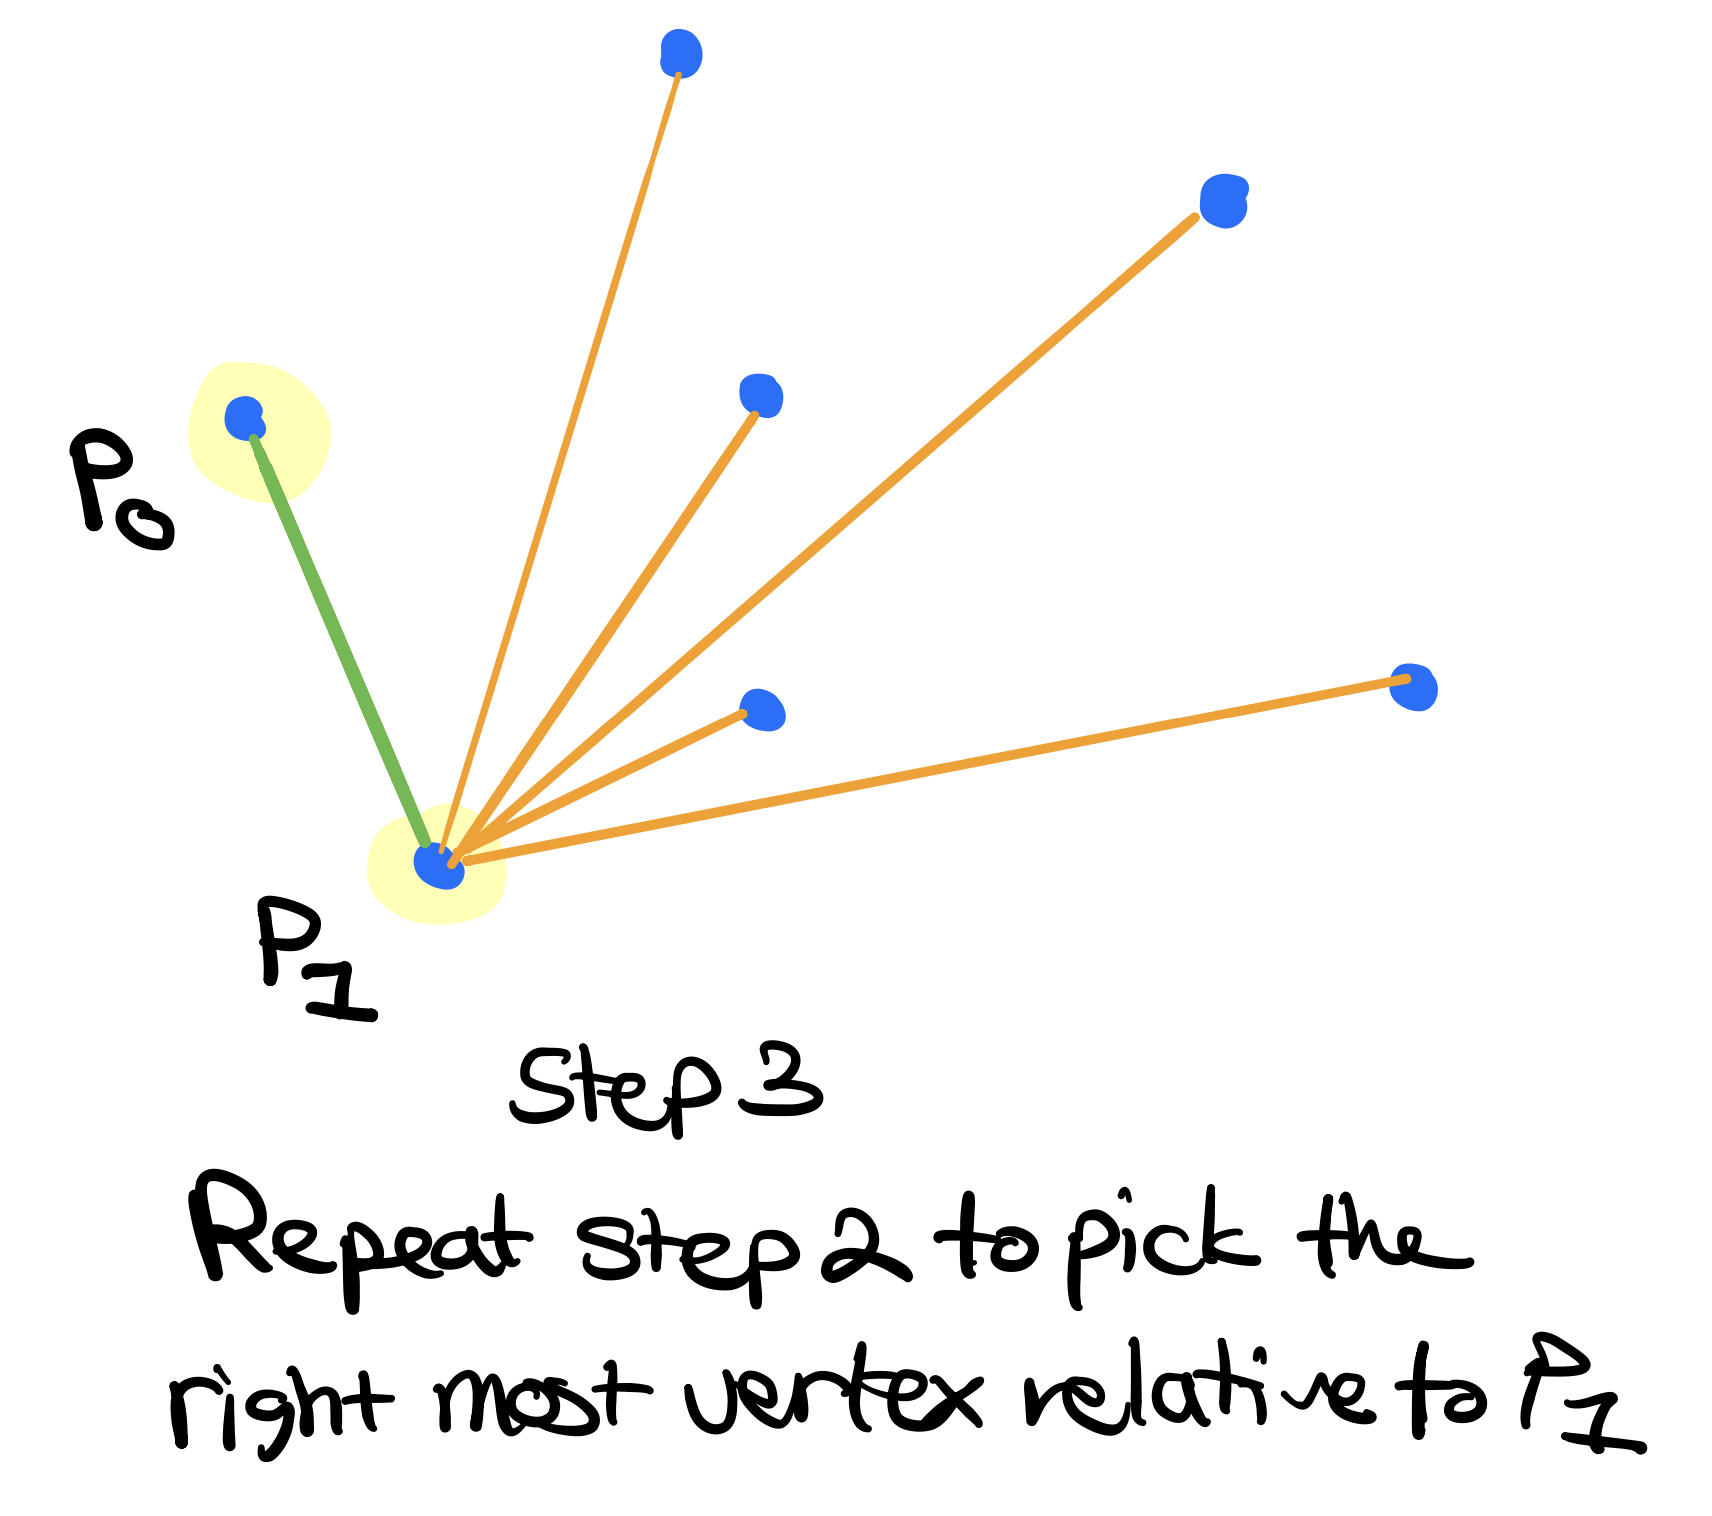 P0
P1
Step 3
Repeat step 2 to pick the
right most vertex relative to P1